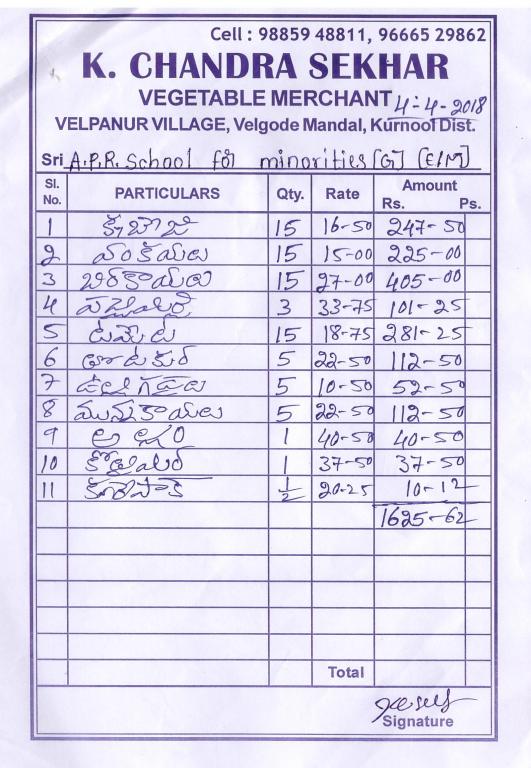 Cell : 98859 48811, 96665 29862
K. CHANDRA SEKHAR
VEGETABLE MERCHANT 4-4-2018
VELPANUR VILLAGE, Velgode Mandal, Kurnool Dist.
Sri A.P.R. School for minorities [G] [E/M]
Sl. No. PARTICULARS Qty. Rate Amount Rs. Ps.
1 15 16-50 247-50
2 వంకాయలు 15 15-00 225-00
3 బీరకాయలు 15 27-00 405-00
4 3 33-75 101-25
5 టమోట 15 18-75 281-25
6 తోటకూర 5 22-50 112-50
7 ఉల్లిగడ్డలు 5 10-50 52-50
8 మునగకాయలు 5 22-50 112-50
9 అల్లం 1 40-50 40-50
10 1 37-50 37-50
11 1/2 20-25 10-12
1625-62
Total
Signature